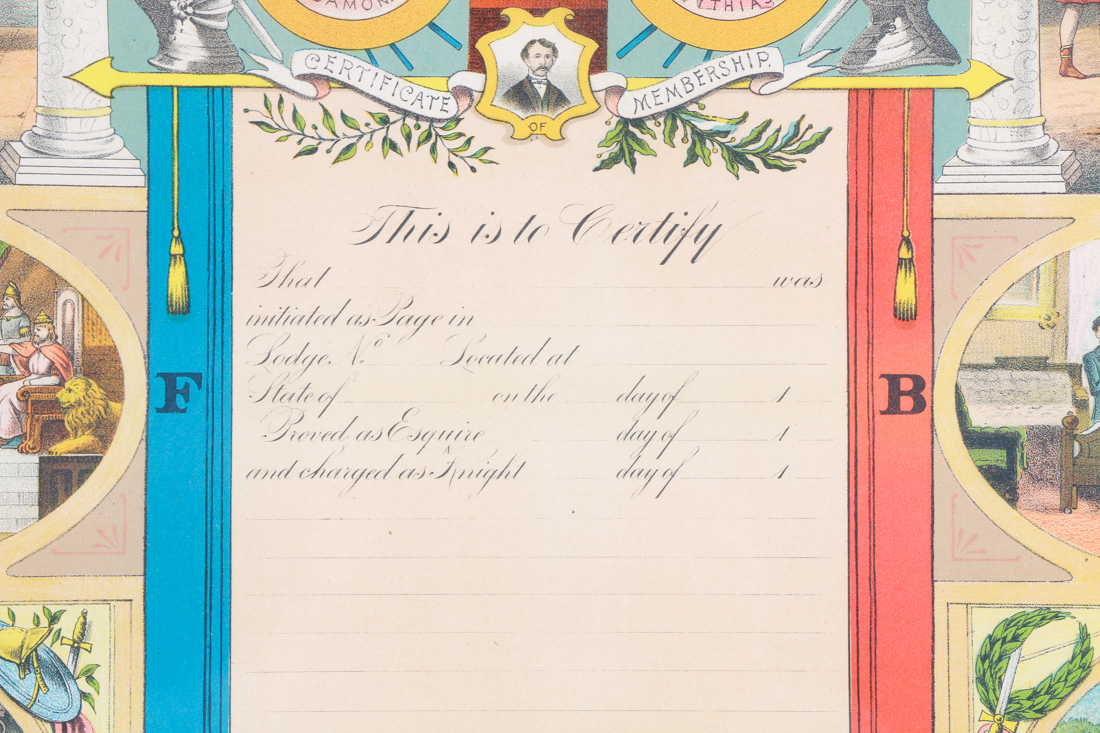 DAMON
PYTHIAS
CERTIFICATE
OF
MEMBERSHIP.
This is to Certify
That was
initiated as Page in
Lodge No Located at
State of on the day of 1
F
B
Proved as Esquire day of 1
and charged as Knight day of 1